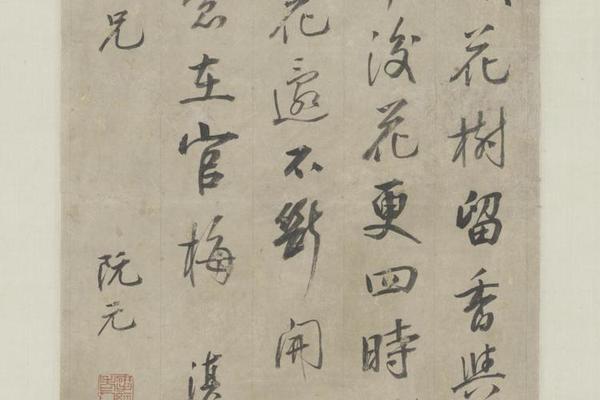 花樹留香與
後花更四時
花還不斷開
在官梅 滇
兄
阮元